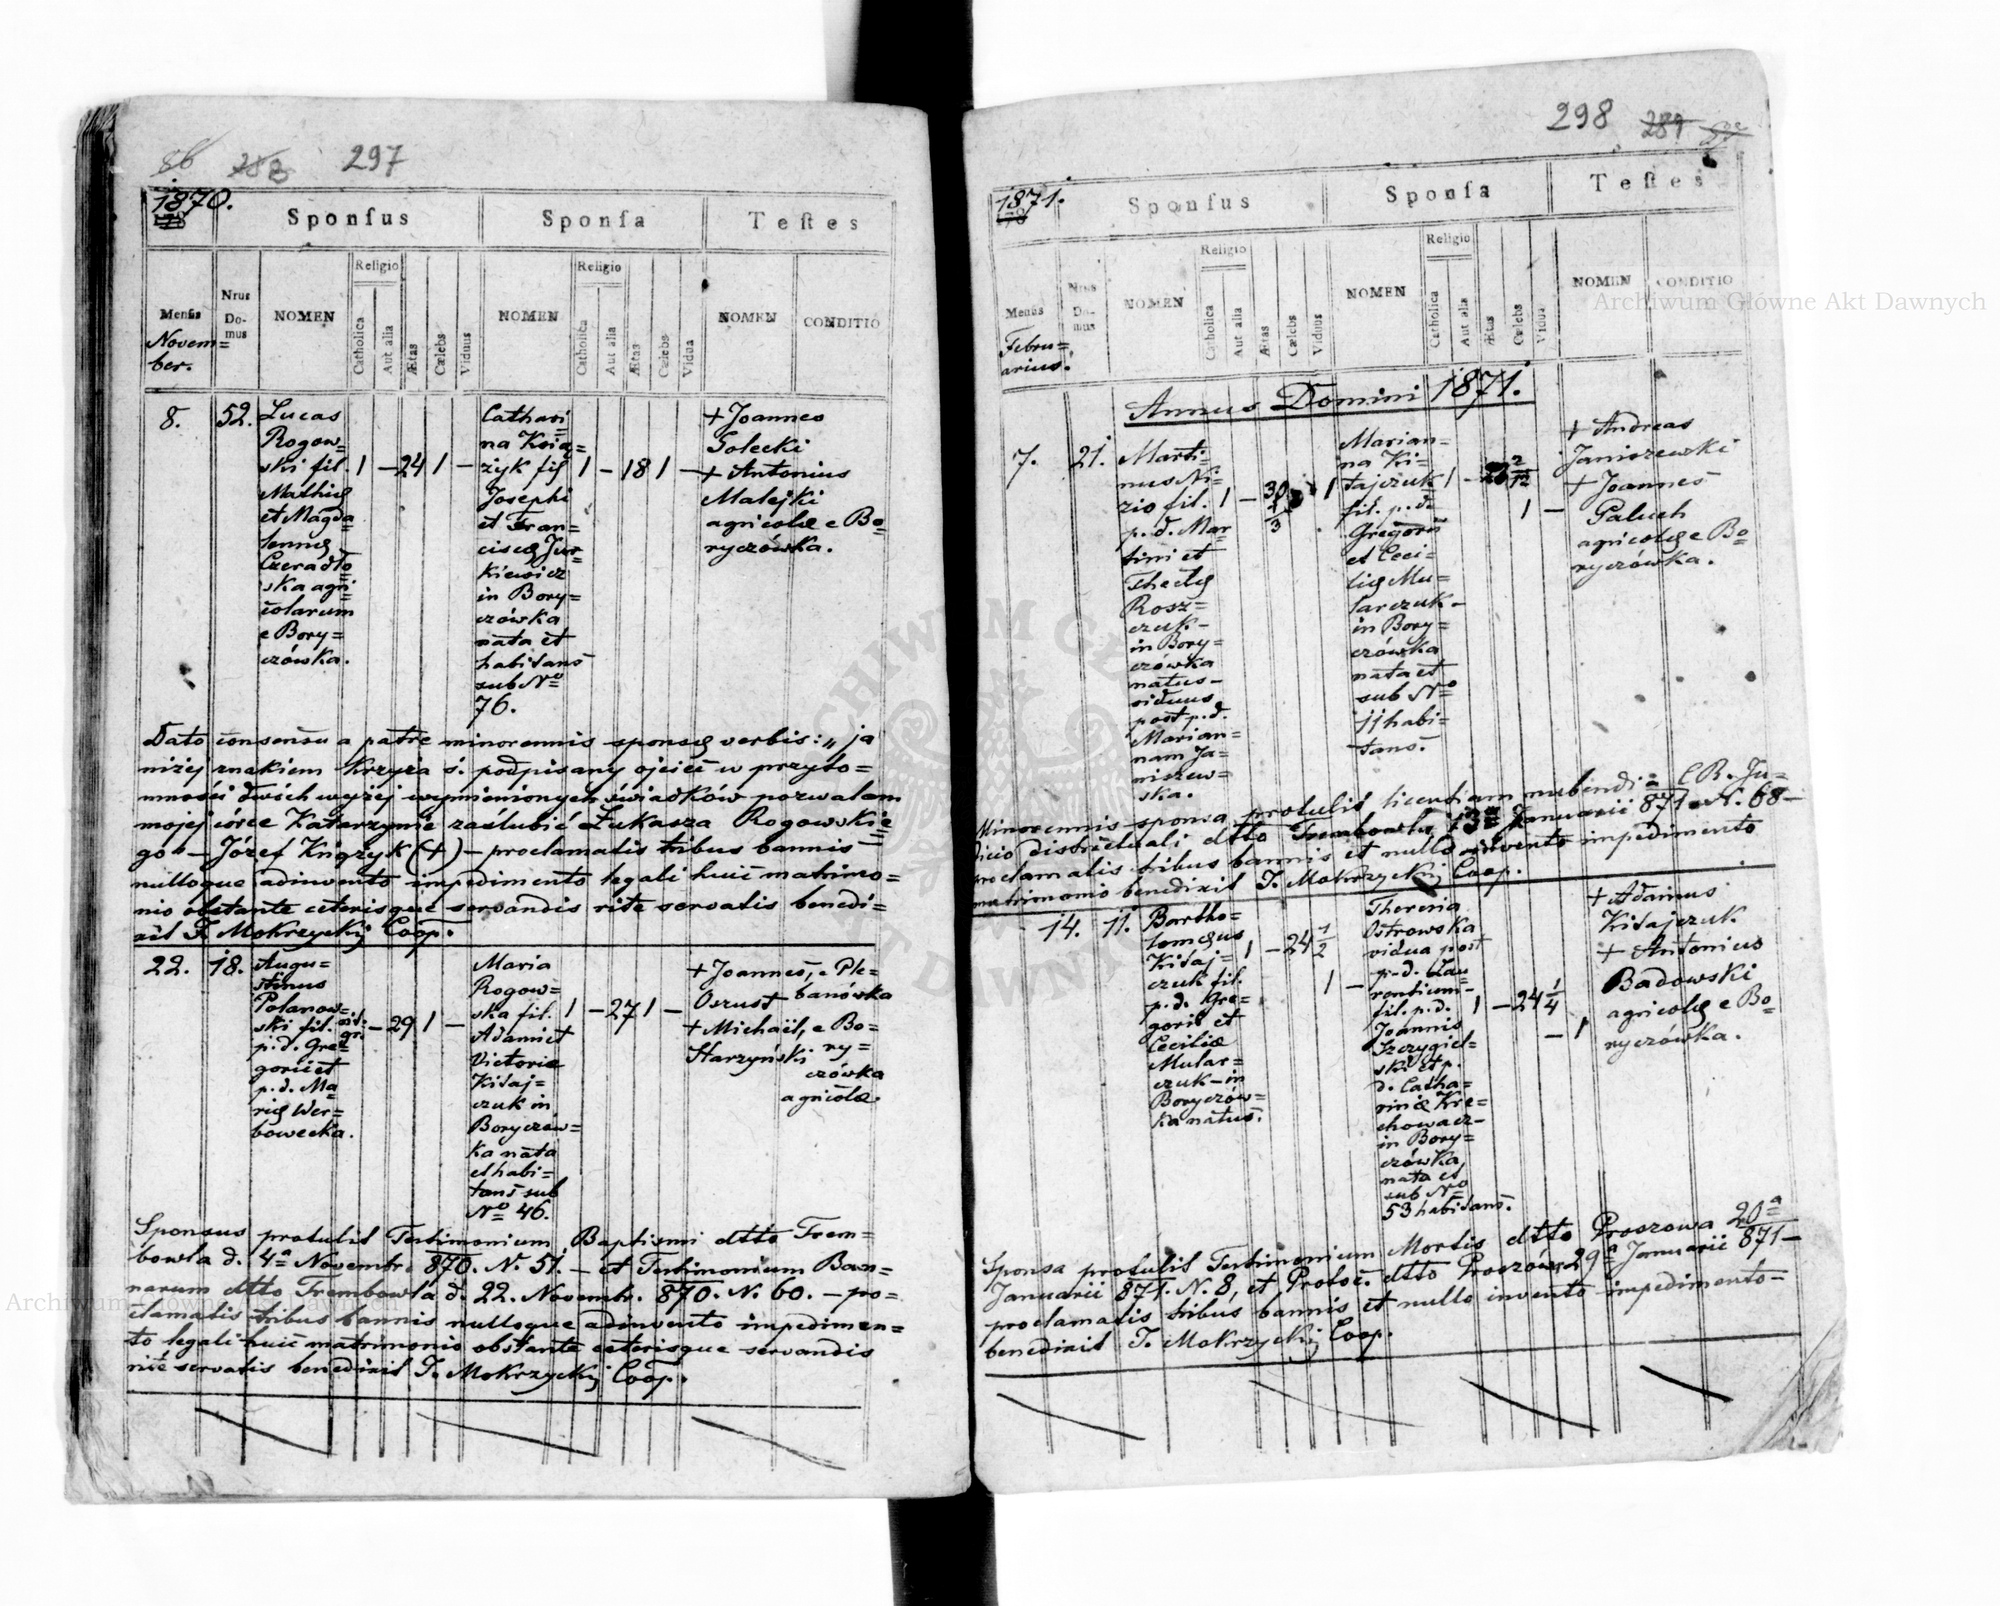 86 288 297
1870.
Sponsus
Sponsa
Testes
Mensis
Novem=
ber.
Nrus
Do-
mus
NOMEN
Religio
Catholica
Aut alia
Ætas
Cælebs
Viduus
NOMEN
Religio
Catholica
Aut alia
Ætas
Cælebs
Vidua
NOMEN
CONDITIO
8.
52.
Lucas
Rogow=
ski fil.
Mathiæ
et Magda
lennæ
Czeradło
ska agri
colarum
e Bory=
czówka.
1 - 24 1 -
Cathari
na Krią=
żyk fil
Josephi
et Fran=
ciscæ Jur
kiewicz
in Bory=
czówka
nata et
habitans
sub No
76.
1 - 18 1 -
+ Joannes
Golecki
+ Antonius
Malejki
agricolæ e Bo=
ryczówka.
Dato consensu a patre minorennis sponsæ verbis: „ja
niżej znakiem krzyża ś. podpisany ojciec w przyto=
mności dwóch wyżej wymienionych świadków pozwalam
mojej córce Katarzynie zaślubić Łukasza Rogowskie=
go" - Józef Książyk (+) - proclamatis tribus bannis
nulloque adinvento impedimento legali huic matrimo=
nio obstante ceterisque servandis rite servatis benedi=
xit T. Mokrzycki Coop.
22.
18.
Augu=
stinus
Polanow=
ski fil. agri.
p.d. Gre=
gorii et
p.d. Ma
riæ Wer=
bowecka.
- 29 1 -
Maria
Rogow=
ska fil.
Adami et
Victoriæ
Kitaj=
czuk in
Boryczow=
ka nata
et habi=
tans sub
No 46.
1 - 27 1 -
+ Joannes, e Ple=
Oszust banówka
+ Michaël, e Bo=
Starzyński ry=
czówka
agricolæ.
Sponsus protulit Testimonium Baptismi dtto Trem=
bowla d. 4a Novembr. 870. N. 51. - et Testimonium Ban=
narum dtto Trembowla d. 22. Novembr. 870. N. 60. - pro=
clamatis tribus bannis nulloque adinvento impedimen=
to legali huic matrimonio obstante ceterisque servandis
rite servatis benedixit T. Mokrzycki Coop.
298 289
1871.
Sponsus
Sponsa
Testes
Mensis
Febru=
arius.
Nrus
Do-
mus
NOMEN
Religio
Catholica
Aut alia
Ætas
Cælebs
Viduus
NOMEN
Religio
Catholica
Aut alia
Ætas
Cælebs
Vidua
NOMEN
CONDITIO
Annus Domini 1871.
7.
21.
Marti=
nus Ni=
zio fil.
p.d. Mar
tini et
Theclæ
Rosz=
czuk -
in Bory=
czówka
natus -
viduus
post p.d.
Marian=
nam Ja=
niszew=
ska.
1 - 30 1/3 1
Marian=
na Ki=
tajczuk
fil. p.d.
Gregorii
et Ceci=
liæ Mu=
larczuk -
in Bory=
czówka
nata et
sub No
11 habi=
tans.
1 - 2/12 1 -
+ Andreas
Janiszewski
+ Joannes
Paluch
agricolæ e Bo=
ryczówka.
Minorennis sponsa protulit licentiam nubendi a C.R. Ju=
dicio districtuali dtto Trembowla 13a Januarii 871 N. 68 -
proclamatis tribus bannis et nullo invento impedimento
matrimonio benedixit T. Mokrzycki Coop.
14.
11.
Bartho=
lomæus
Kitaj=
czuk fil.
p.d. Gre=
gorii et
Ceciliæ
Mular=
czuk - in
Boryczów=
ka natus.
1 - 24 1/2 1 -
Theresia
Ostrowska
vidua post
p.d. Lau
rentium -
fil. p.d.
Joannis
Szczygiel=
ski et p.
d. Catha=
rinæ Kre=
chowacz -
in Bory=
czówka
nata et
sub No
53 habitans.
1 - 24 1/4 - 1
+ Adamus
Kitajczuk
+ Antonius
Badowski
agricolæ e Bo=
ryczówka.
Sponsa protulit Testimonium Mortis dtto Proszowa 20a
Januarii 871. N. 8, et Protoc. dtto Proszów 29a Januarii 871 -
proclamatis tribus bannis et nullo invento impedimento -
benedixit T. Mokrzycki Coop.
Archiwum Główne Akt Dawnych
Archiwum Główne Akt Dawnych